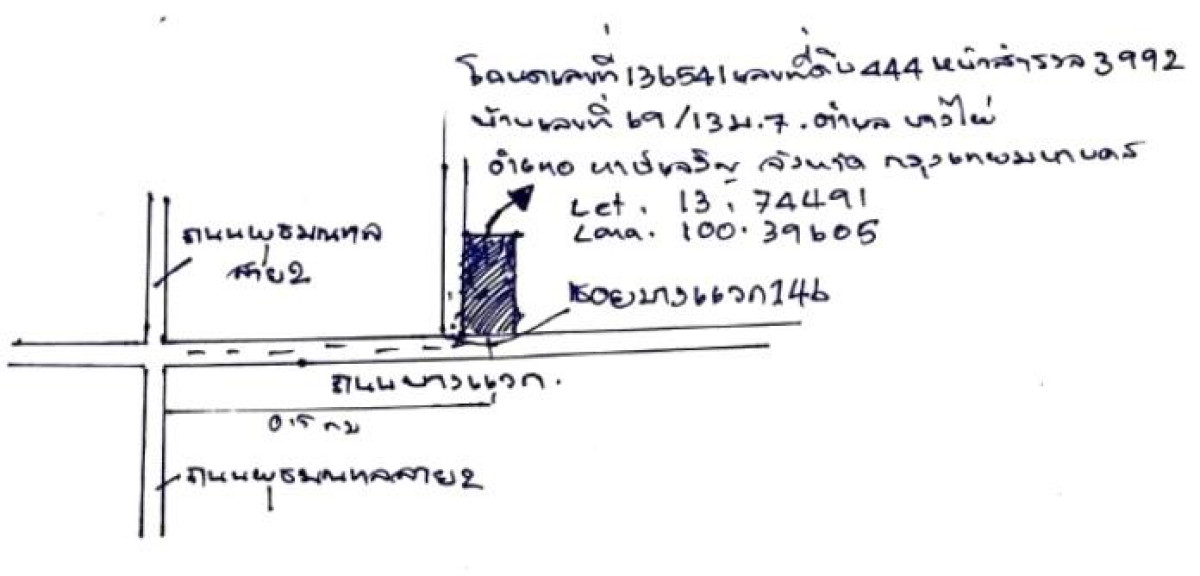 โฉนดเลขที่ 136541 เลขที่ดิน 444 หน้าสำรวจ 3992
บ้านเลขที่ 69/13 ม.7. ตำบล บางไผ่
อำเภอ ภาษีเจริญ จังหวัด กรุงเทพมหานคร
Let. 13.74491
Lona. 100.39605
ถนนพุธมณฑล
สาย2
ซอยบางแวก146
ถนนบางแวก.
0.5 กม
ถนนพุธมณฑลสาย2